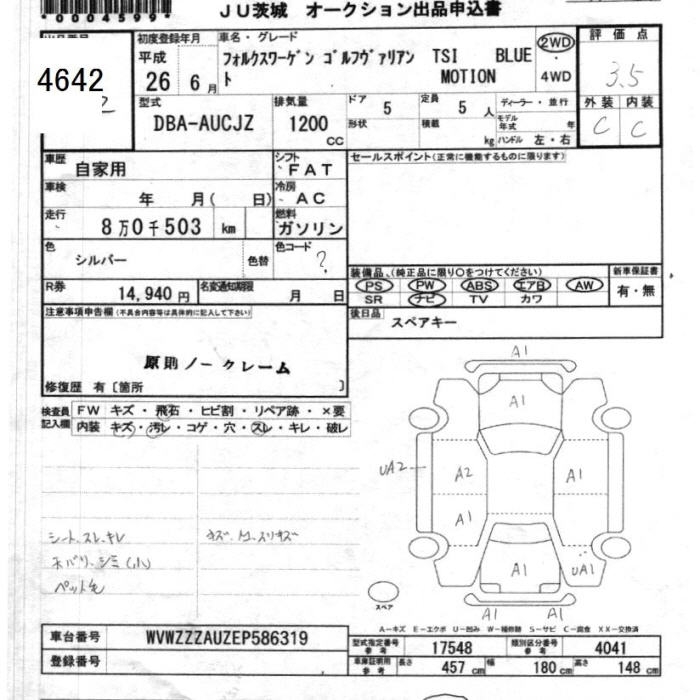 *0004599*
JU茨城 オークション出品申込書
4642
初度登録年月
平成
26 6月
車名・グレード
フォルクスワーゲン ゴルフヴァリアン TSI BLUE
ト MOTION
2WD
・
4WD
評価点
3.5
外装 内装
C C
型式
DBA-AUCJZ
排気量
1200
CC
ドア 5
形状
定員 5 人
積載 kg
ディーラー・並行
モデル年式 年
ハンドル 左・右
車歴
自家用
シフト
FAT
セールスポイント(正常に機能するものに限ります)
車検
年 月( 日)
冷房
AC
走行
8万0千503 km
燃料
ガソリン
色
シルバー
色替
色コード
?
装備品、(純正品に限り○をつけてください)
PS PW ABS エアB AW
SR ナビ TV カワ
新車保証書
有・無
R券
14,940円
名変通知期限
月 日
後日品
スペアキー
注意事項申告欄(不具合内容等は具体的に記入して下さい)
原則ノークレーム
修復歴 有〔箇所 〕
検査員
記入欄
FW キズ・飛石・ヒビ割・リペア跡・×要
内装 キズ・汚レ・コゲ・穴・スレ・キレ・破レ
A1
A1
UA2
A2
A1
A1
A1
UA1
A1 A1
シート、スレ、キレ
ペット毛
スペア
A-キズ E-エクボ U-凹み W-補修跡 S-サビ C-腐食 XX-交換済
車台番号
WVWZZZAUZEP586319
登録番号
型式指定番号
参考
17548
類別区分番号
参考
4041
車庫証明用
参考
長さ 457 cm
幅 180 cm
高さ 148 cm